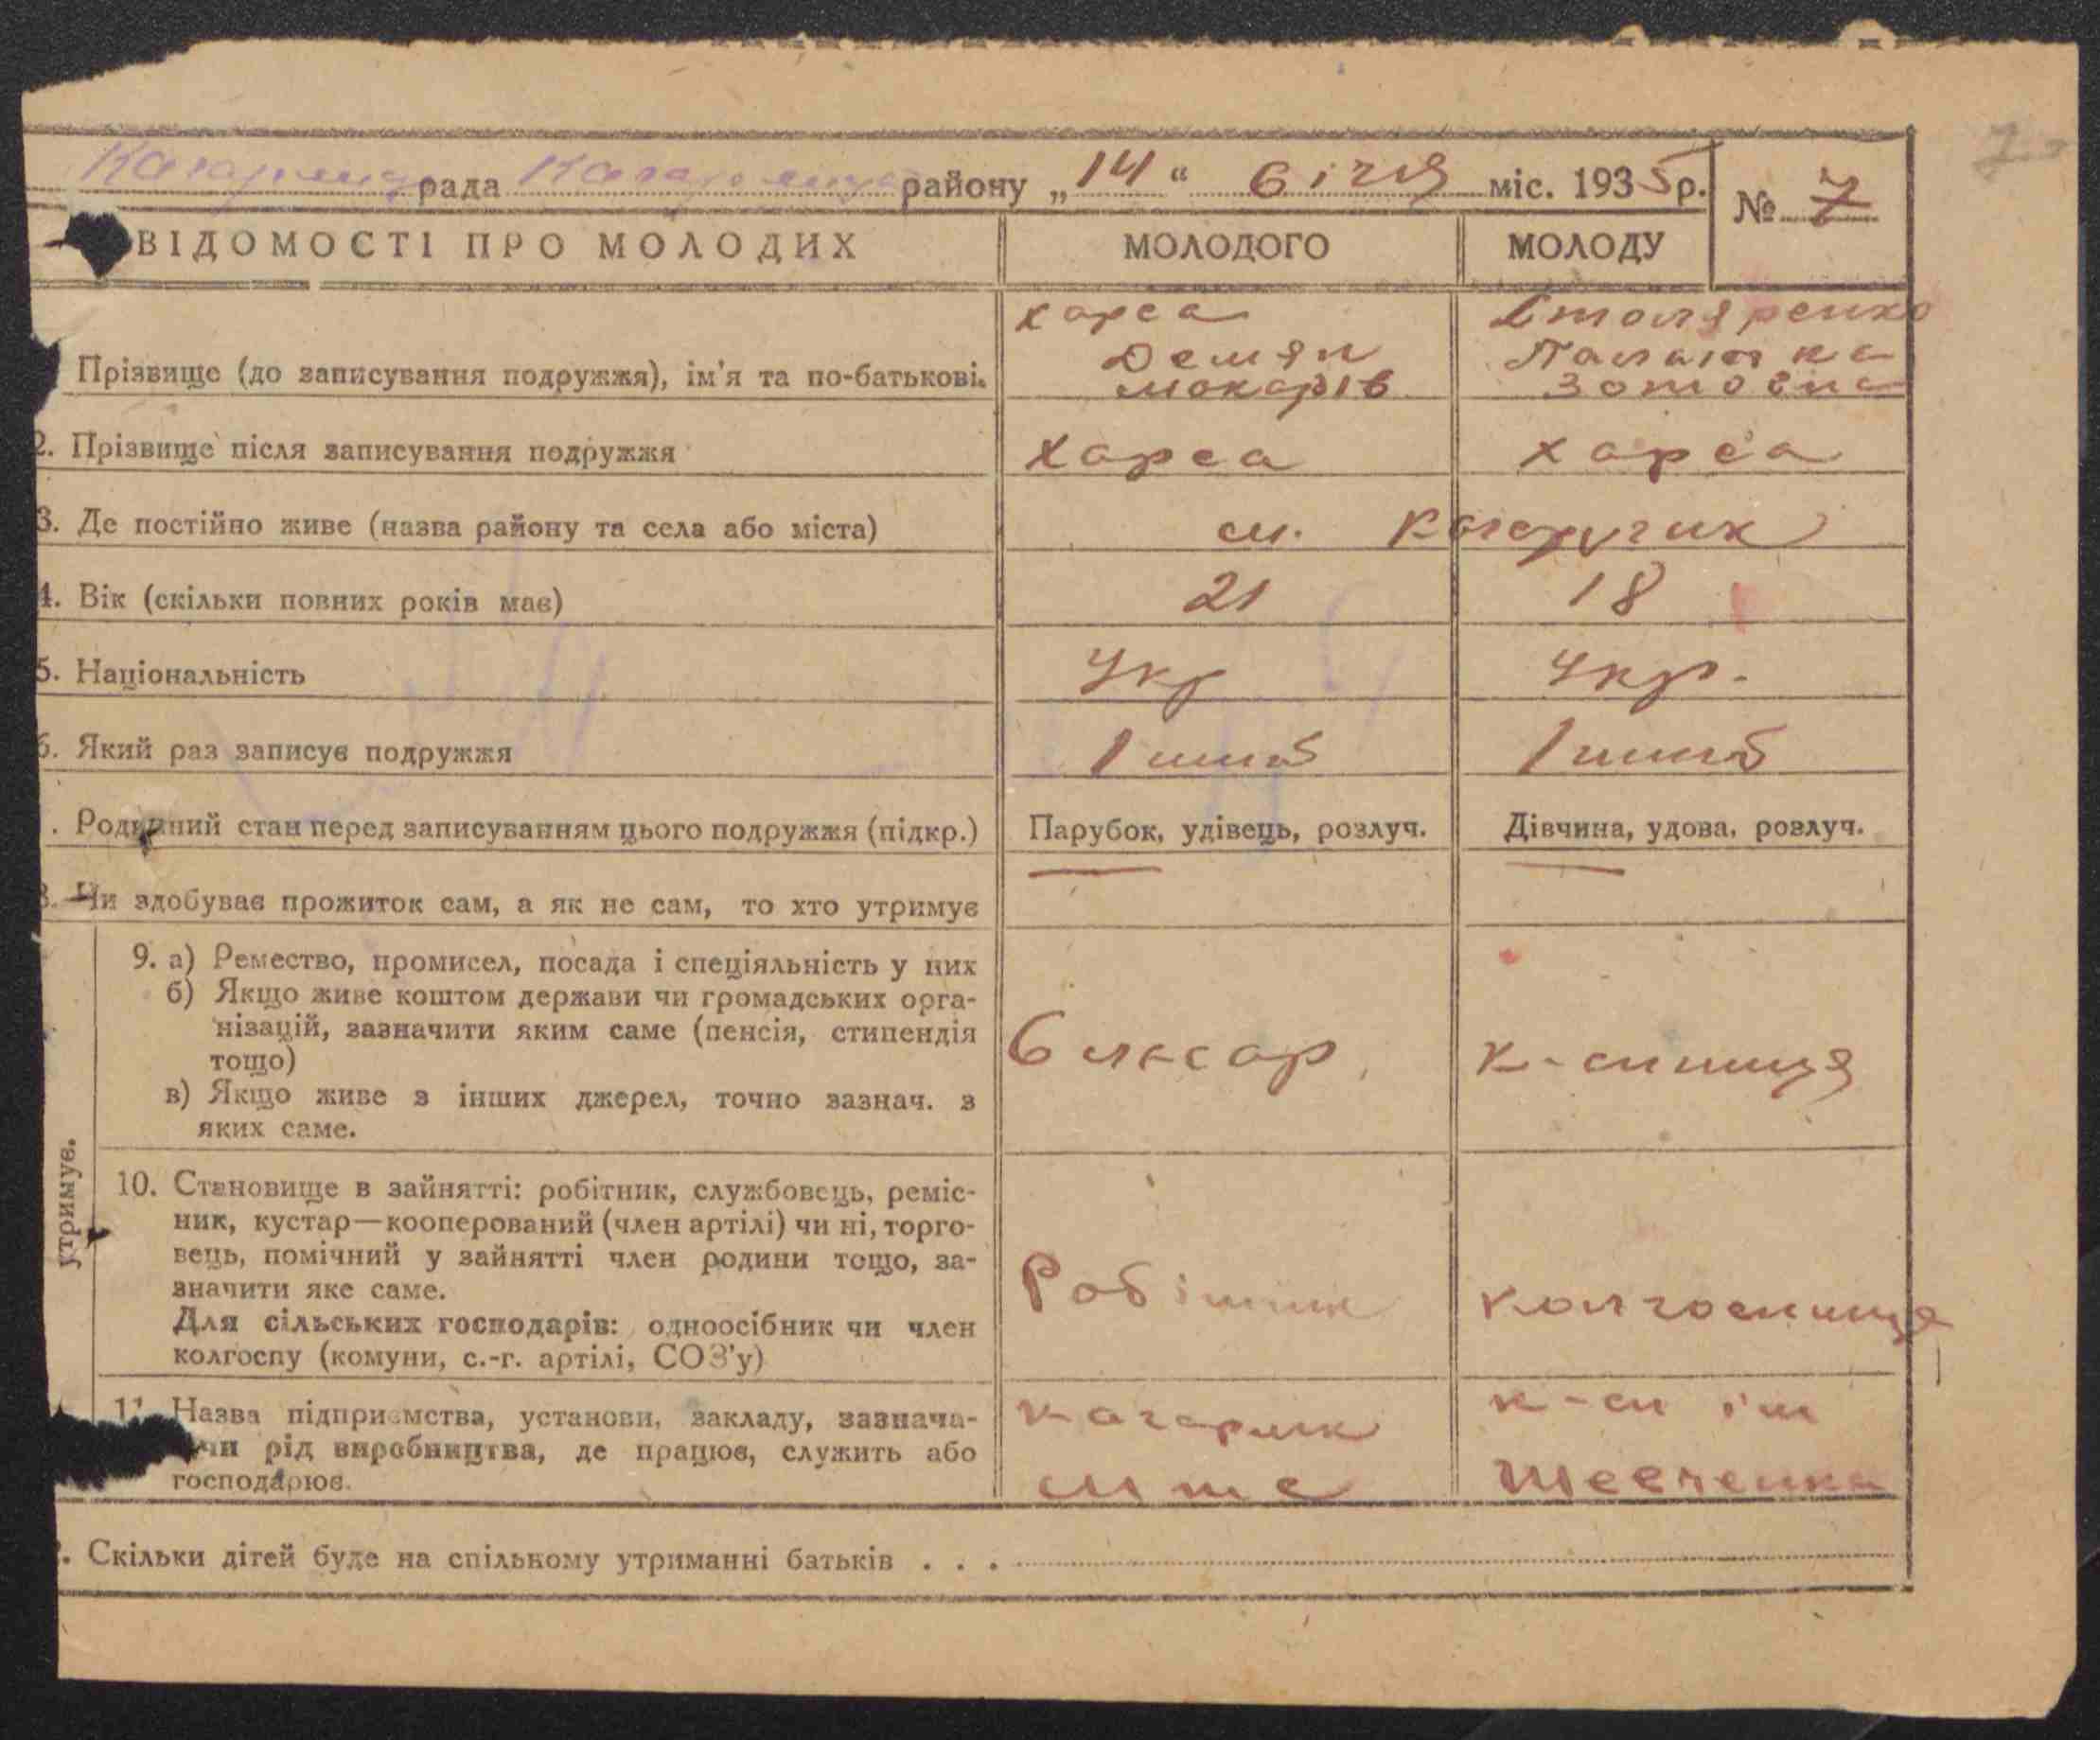 рада району „14“ січня міс. 1935 р. № 7
ВІДОМОСТІ ПРО МОЛОДИХ МОЛОДОГО МОЛОДУ
Харса Столяренко
Демян
Прізвище (до записування подружжя), ім'я та по-батькові. Мокарів Зотовна
2. Прізвище після записування подружжя Харса Харса
3. Де постійно живе (назва району та села або міста) см.
4. Вік (скільки повних років має) 21 18
5. Національність Укр Укр.
6. Який раз записує подружжя 1 ший 1 ший
. Родинний стан перед записуванням цього подружжя (підкр.) Парубок, удівець, розлуч. Дівчина, удова, розлуч.
8. Чи здобуває прожиток сам, а як не сам, то хто утримує
утримує.
9. а) Ремество, промисел, посада і спеціяльність у них
б) Якщо живе коштом держави чи громадських орга-
нізацій, зазначити яким саме (пенсія, стипендія
тощо) Слюсар к-спниця
в) Якщо живе з інших джерел, точно зазнач. з
яких саме.
10. Становище в зайнятті: робітник, службовець, реміс-
ник, кустар—кооперований (член артілі) чи ні, торго-
вець, помічний у зайнятті член родини тощо, за-
значити яке саме. Робітник колгоспниця
Для сільських господарів: одноосібник чи член
колгоспу (комуни, с.-г. артілі, СОЗ'у)
11. Назва підприємства, установи, закладу, зазнача- Кагарлик к-сп ім
ючи рід виробництва, де працює, служить або
господарює. мтс Шевченка
. Скільки дітей буде на спільному утриманні батьків . . .